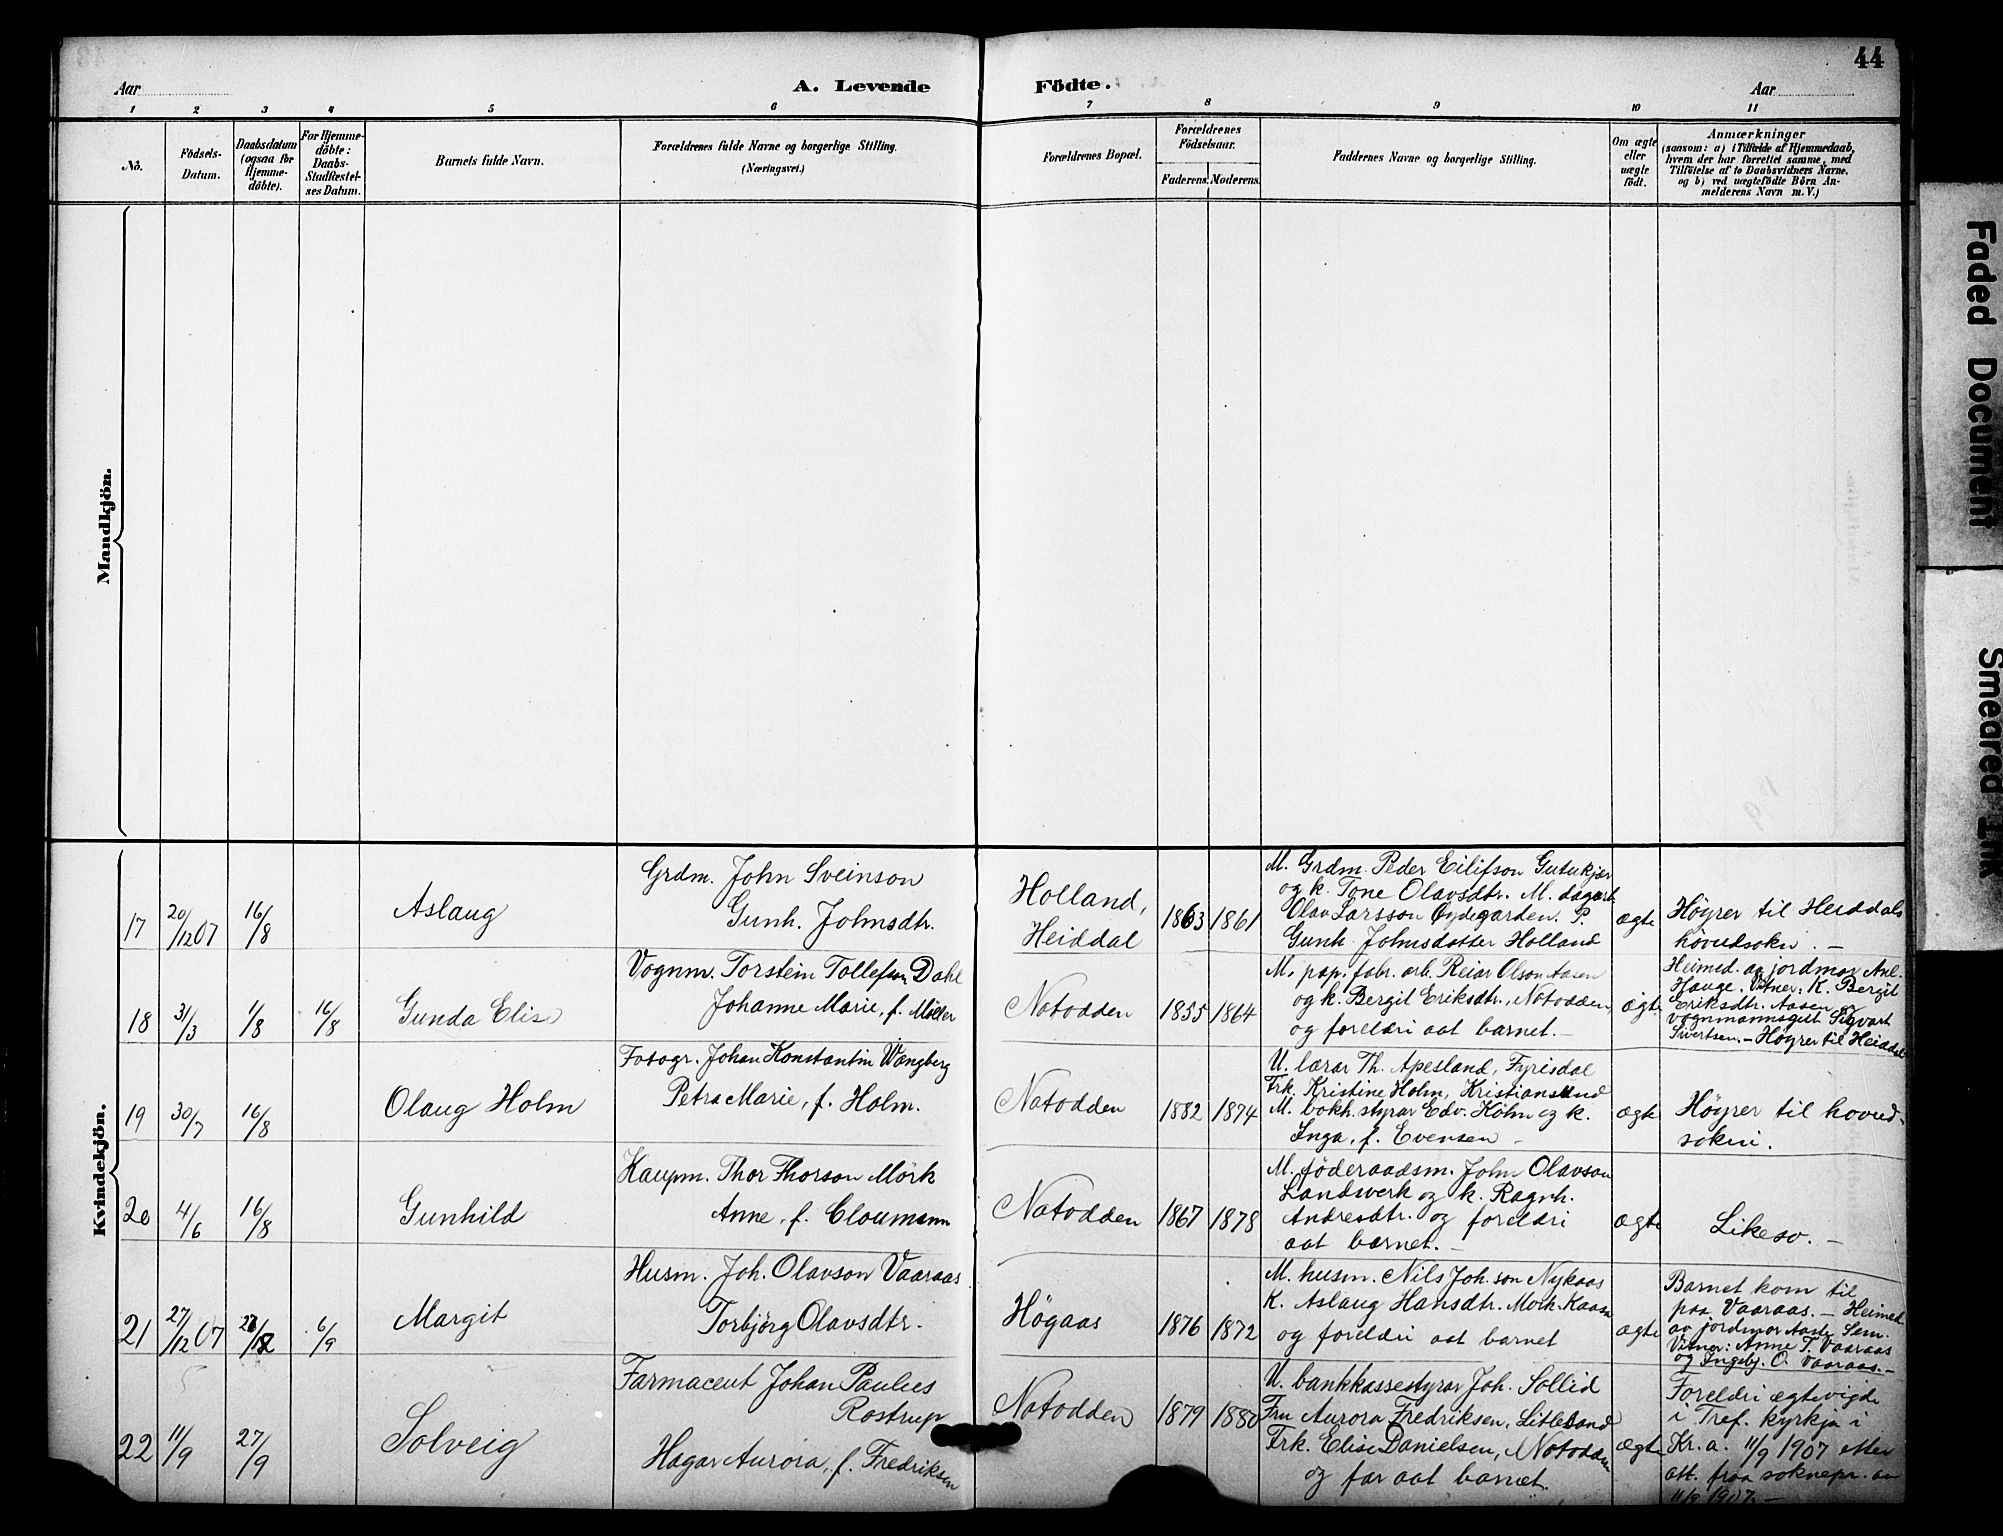 44
Aar
A. Levende
Födte.
Aar
1 2 3 4 5 6 7 8 9 10 11
No.
Födsels-
Datum.
Daabsdatum
(ogsaa for
Hjemme-
döbte).
For Hjemme-
döbte:
Daabs-
Stadfæstel-
ses Datum.
Barnets fulde Navn.
Forældrenes fulde Navne og borgerlige Stilling.
(Næringsvei.)
Forældrenes Bopæl.
Forældrenes
Födselsaar.
Faderens. Moderens.
Faddernes Navne og borgerlige Stilling.
Om ægte
eller
uægte
födt.
Anmærkninger
(saasom: a) i Tilfælde af Hjemmedaab,
hvem der har forrettet samme, med
Tilföielse af to Daabsvidners Navne,
og b) ved uægtefödte Börn An-
melderens Navn m. V.)
Mandkjön.
Kvindekjön.
17
20/12 07
16/8
Aslaug
Grdm. John Sveinson
Gunh. Johnsdtr.
Holland,
Heiddal
1863
1861
M. Grdm. Peder Eilifson Gutukjær
og k. Tone Olavsdtr. M. dagarb.
Olav Larsson Öydegarden. P.
Gunh. Johnsdotter Holland
ægte
Höyrer til Heiddals
hovudsokn. –
18
31/3
1/8
16/8
Gunda Elise
Vognm. Torstein Tollefson Dahl
Johanne Marie, f. Möller
Notodden
1855
1864
M. pap. fabr. arb. Reiar Olson Aasen
og k. Bergit Eriksdtr., Notodden,
og foreldri aat barnet. –
ægte
Heimed. av jordmor Ane
Hauge. Vitner: K. Bergit
Eriksdtr. Aasen og
vognmannsgut Sigvart
Sivertsen. – Höyrer til Heiddal
19
30/7
16/8
Olaug Holm
Fotogr. Johan Konstantin Wangberg
Petra Marie, f. Holm.
Notodden
1882
1874
U. lærar Th. Apesland, Fyrisdal
Frk. Kristine Holm, Kristiansund
M. bokh. styrar Edv. Holm og k.
Inga, f. Evensen –
ægte
Höyrer til hovud-
sokni.
20
4/6
16/8
Gunhild
Kaupm. Thor Thorson Mörk
Anne, f. Cloumann
Notodden
1867
1878
M. föderaadsm. John Olavson
Landsverk og k. Ragnh.
Andresdtr. og foreldri
aat barnet. –
ægte
Likeso. –
21
27/12 07
6/9
Margit
Husm. Joh. Olavson Vaaraas
Torbjörg Olavsdtr.
Högaas
1876
1872
M. husm. Nils Joh.son Nykaas
K. Aslaug Hansdtr. Mork-Kaasa
og foreldri aat barnet
ægte
Barnet kom til
paa Vaaraas. – Heimed.
av jordmor Aaste Sem.
Vitner: Anne T. Vaaraas
og Ingebj. O. Vaaraas. –
22
11/9
27/9
Solveig
Farmaceut Johan Paulus
Rostrup
Hagar Aurora, f. Fredriksen
Notodden
1879
1880
U. bankkassestyrar Joh. Sollid
Fru Aurora Fredriksen, Litlesand
Frk. Elise Danielsen, Notodden
og far aat barnet.
ægte
Foreldri ægtevigde
i Tref. kyrkja i
Kr.a. 11/9 1907 etter
att. fraa soknepr. av
11/9 1907. –
Faded Document
Smeared Ink